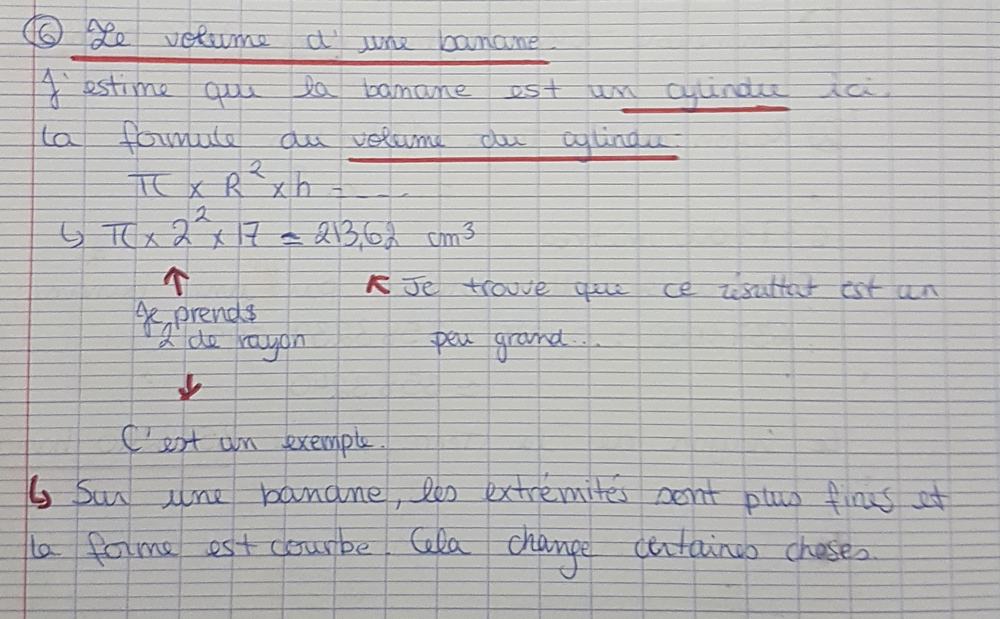 ⑥ Le volume d'une banane.
J'estime que la banane est un cylindre ici.
La formule du volume du cylindre.
π × R² × h = ---
↳ π × 2² × 17 = 213,62 cm³
↑ ↖ Je trouve que ce résultat est un
Je prends
2 de rayon peu grand...
↓
C'est un exemple.
↳ Sur une banane, les extrémités sont plus fines et
la forme est courbe. Cela change certaines choses.